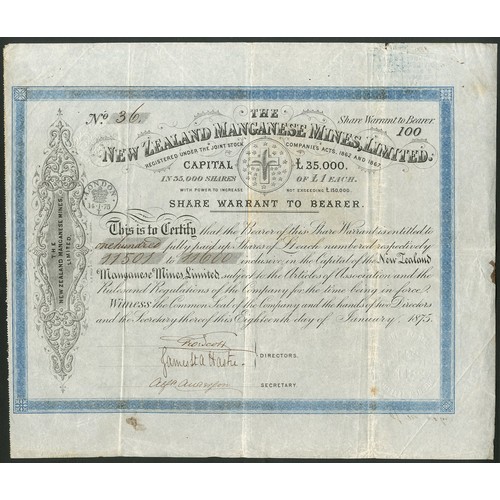 No 36
THE
Share Warrant to Bearer
100
NEW ZEALAND MANGANESE MINES, LIMITED.
REGISTERED UNDER THE JOINT STOCK COMPANIES ACTS, 1862 AND 1867.
CAPITAL £35,000.
IN 35,000 SHARES OF £1 EACH.
WITH POWER TO INCREASE NOT EXCEEDING £150,000.
SHARE WARRANT TO BEARER.
LONDON
THE
NEW ZEALAND MANGANESE MINES,
LIMITED.
This is to Certify that the Bearer of this Share Warrant is entitled to
one hundred fully paid up Shares of £1 each numbered respectively
11501 to 11600 inclusive, in the Capital of the New Zealand
Manganese Mines Limited, subject to the Articles of Association and the
Rules and Regulations of the Company for the time being in force.
Witness the Common Seal of the Company and the hands of two Directors
and the Secretary thereof this Eighteenth day of January 1875.
DIRECTORS.
SECRETARY.